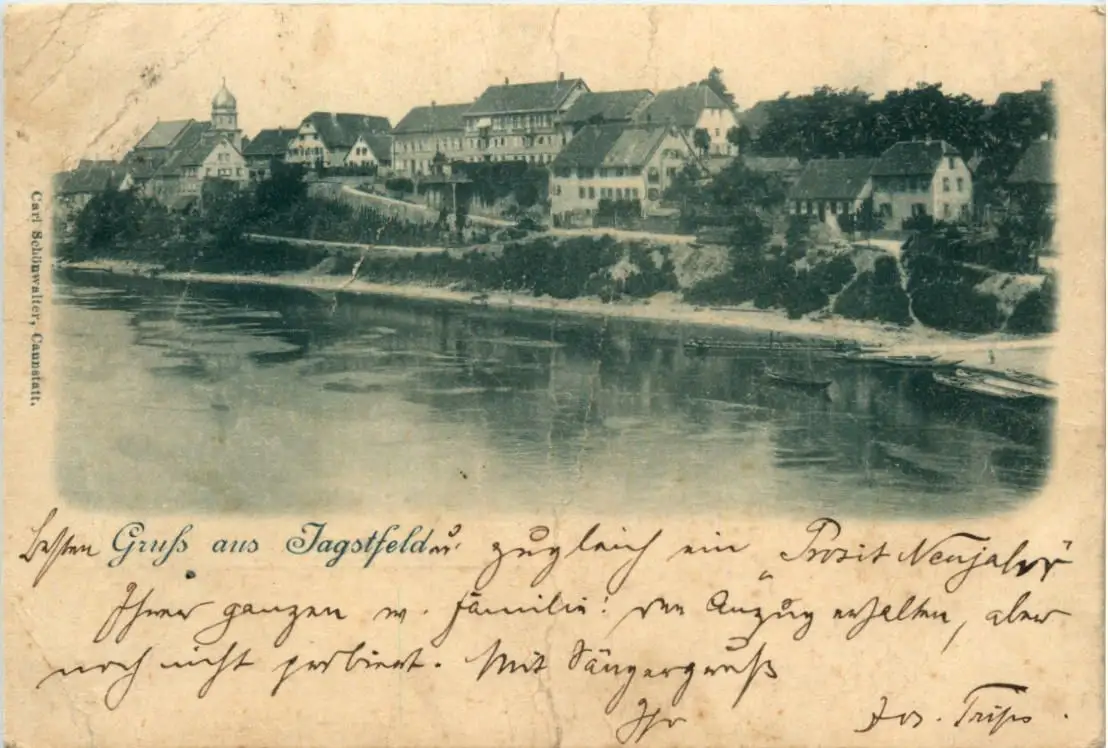 Carl Schönwalter, Cannstatt.
Besten Gruß aus Jagstfeld u. zugleich ein „Prosit Neujahr“
Ihrer ganzen w. Familie! den Anzug erhalten, aber
noch nicht probiert. Mit Sängergruß
Ihr Jos.